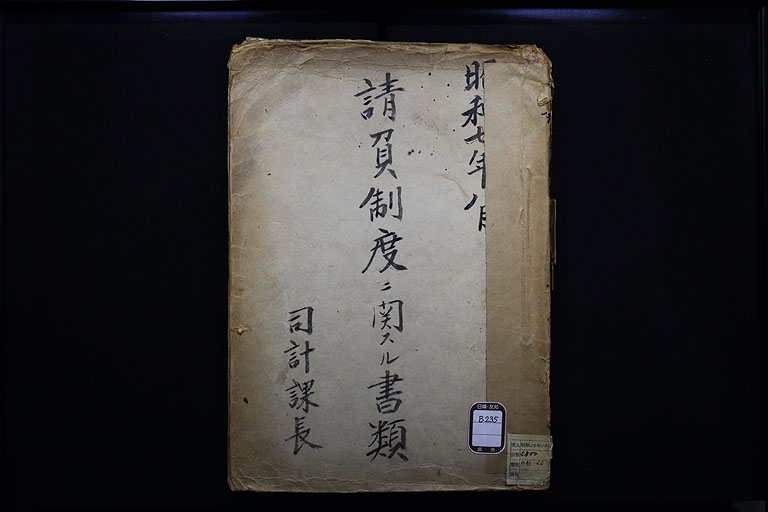 昭和七年八月
請負制度ニ関スル書類
司計課長
B235